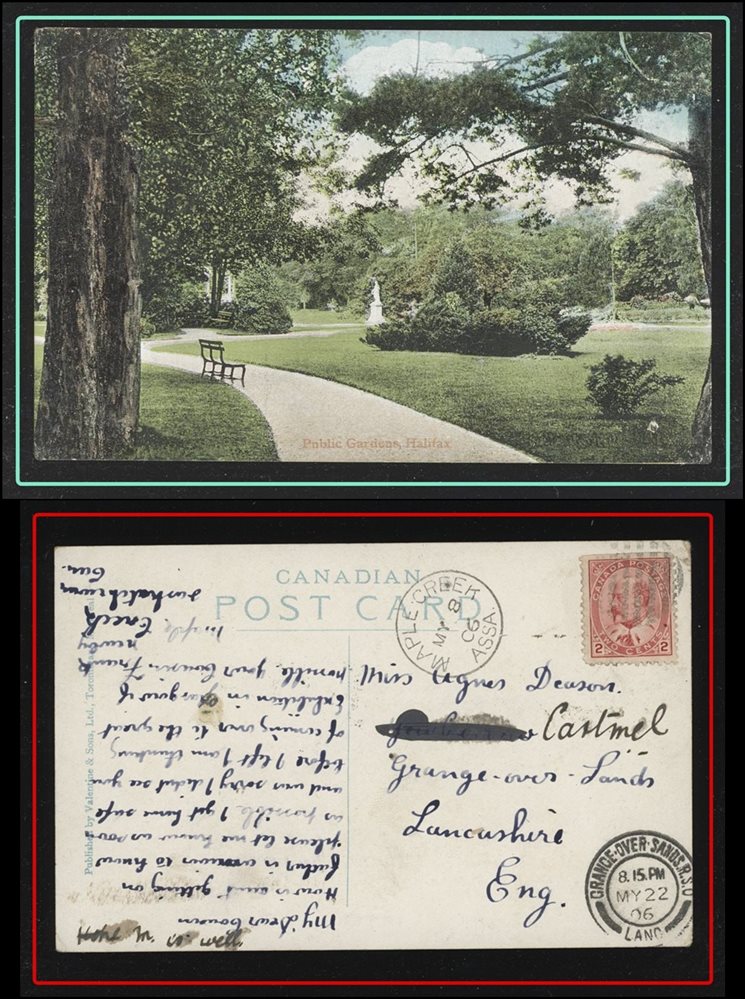 Public Gardens, Halifax
CANADIAN
POST CARD
MAPLE CREEK
MY 8
06
ASSA.
CANADA POSTAGE
2 TWO CENTS 2
Miss Agnes Deason.
Cartmel
Grange-over-Sands
Lancashire
Eng.
GRANGE-OVER-SANDS. R.S.O
8.15.PM
MY 22
06
LANC
Published by Valentine & Sons, Ltd., Toronto
My dear Cousin
How is aunt getting on
father is anxious to know
please let me know as soon
as possible I got home safe
and was sorry I didnt see you
before I left I am thinking
of coming over to the great
Exhibition in Glasgow if
possible, your Cousin Frank
Newby
Maple Creek
Saskatchewan
Can.
M. is well.